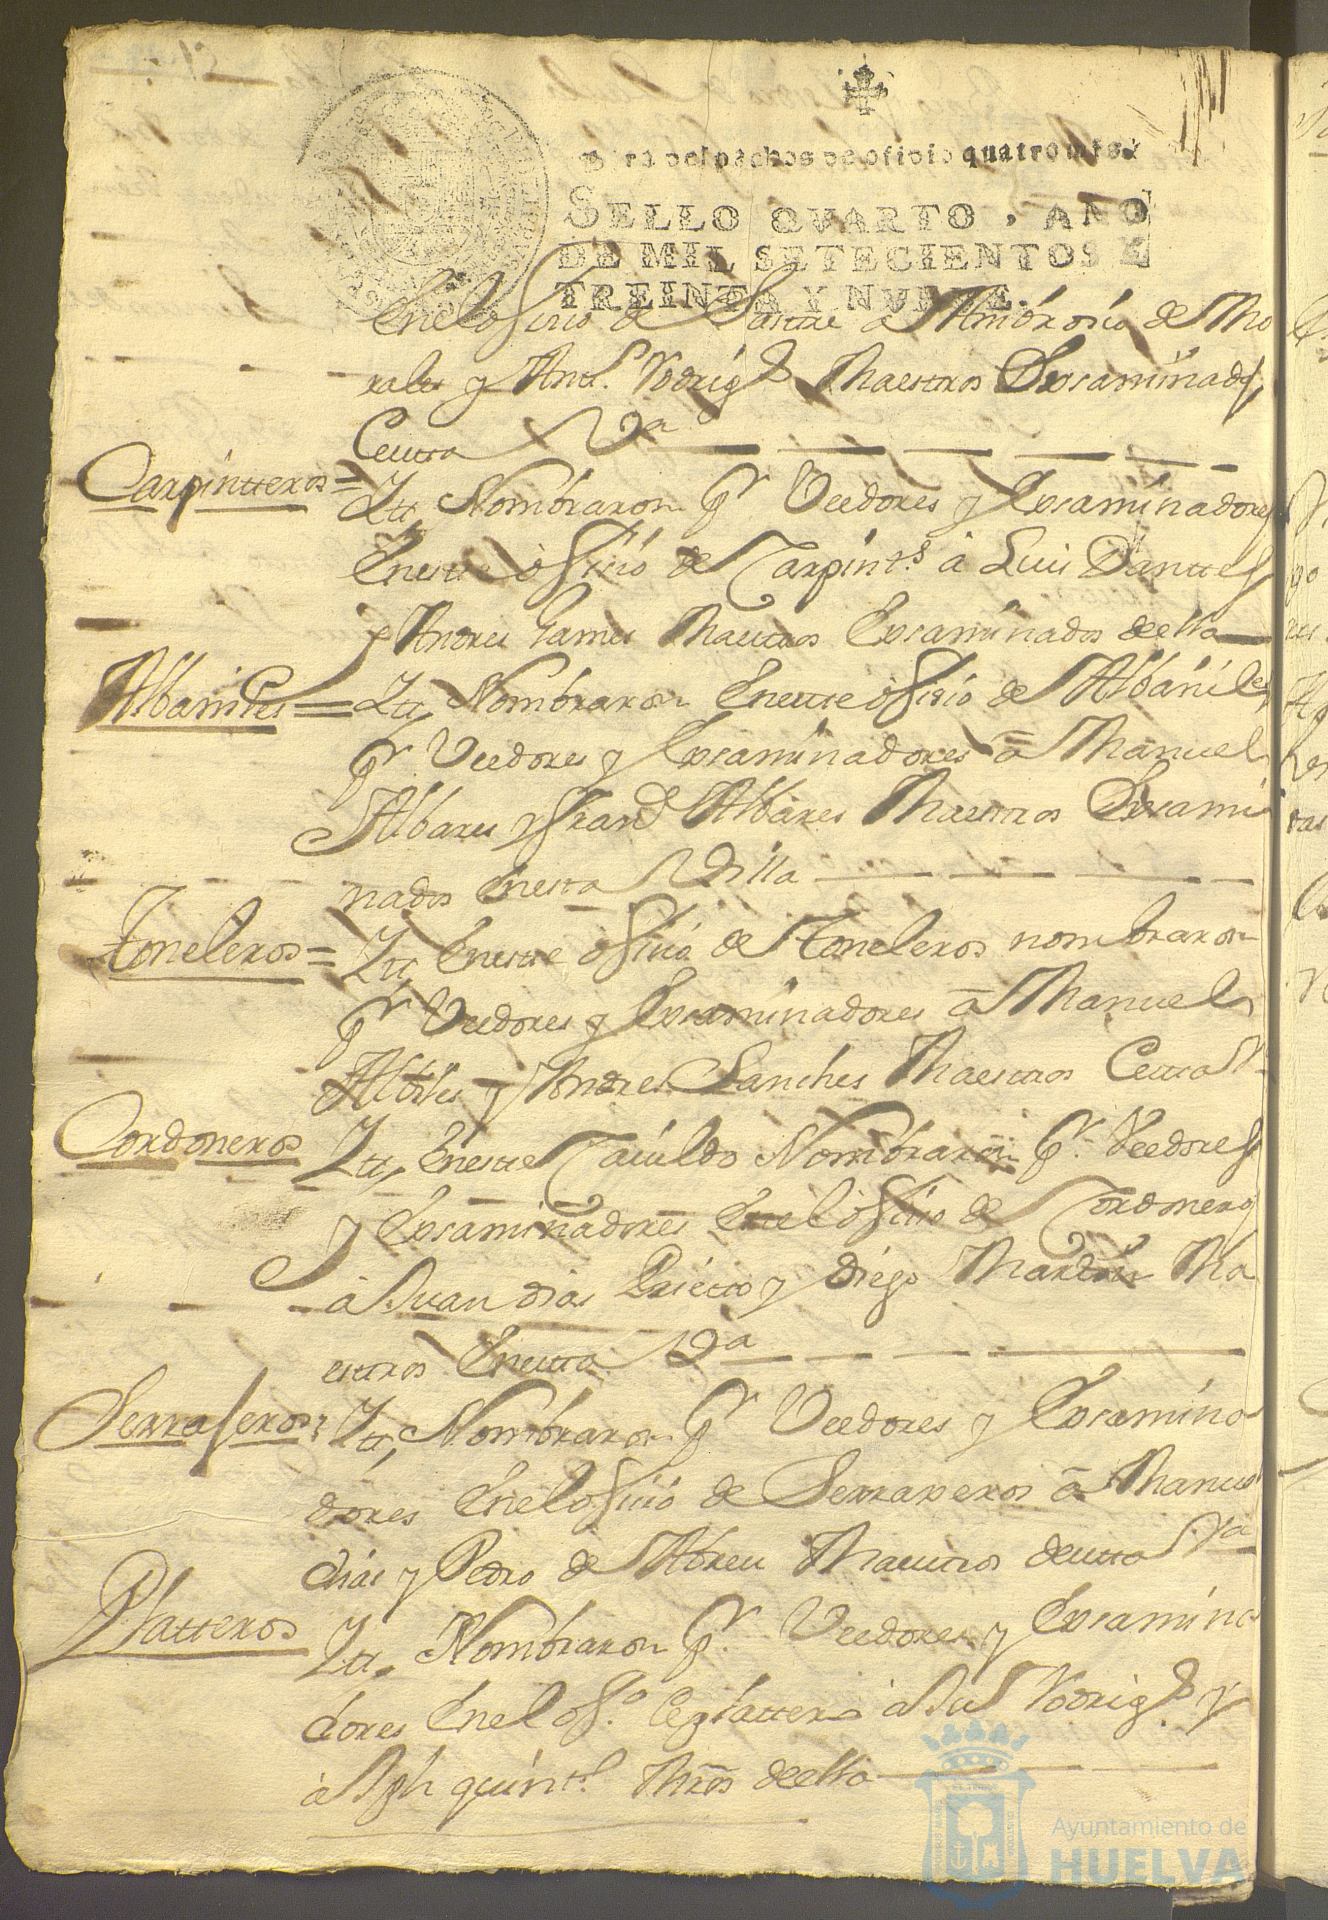 Para despachos de oficio quatro mrs.
SELLO QVARTO, AÑO
DE MIL SETECIENTOS Y
TREINTA Y NVEVE.
Enel ofizio de Sastre a Ambrosio de Mo
rales y Antt.º Rodrig.s Maestros Exsaminados
Eneutta Va
Carpintteros = Itt, Nombraron pr Veedores y Exsaminadores
Enestte ofizio de Carpint.s â Luis Danttes
y Andres Games Maestros Exsaminados deella
Albaniles = Itt, Nombraron Enestte ofisio de Albaniles
pr Veedores y Exsaminadores â Manuel
Albares y Fran.co Albares Maestros Exsami
nados Enesta Villa
Toneleros = Itt, Enestte ofizio de Toneleros nombraron
pr Veedores y Exsaminadores â Manuel
y Andres Sanches Maestros
Cordoneros Itt, Enestte Cavildo Nombraron pr. Veedores
y Exsaminadores Enel ofizio de Cordoneros
â Juan dias Prietto y diego Martin Ma
esttros Enestta Va
Serraxeros = Itt, Nombraron pr Veedores y Exsamina
dores Enel ofizio de Serraxeros â Manuel
dias y Pedro de Abreu Maesttros destta Va
Platteros Itt, Nombraron pr. Veedores y Exsamina
dores Enel of.º de plattero â Ju.º Rodrig.s y
â Jph quint.º Mros deella
Ayuntamiento de
HUELVA